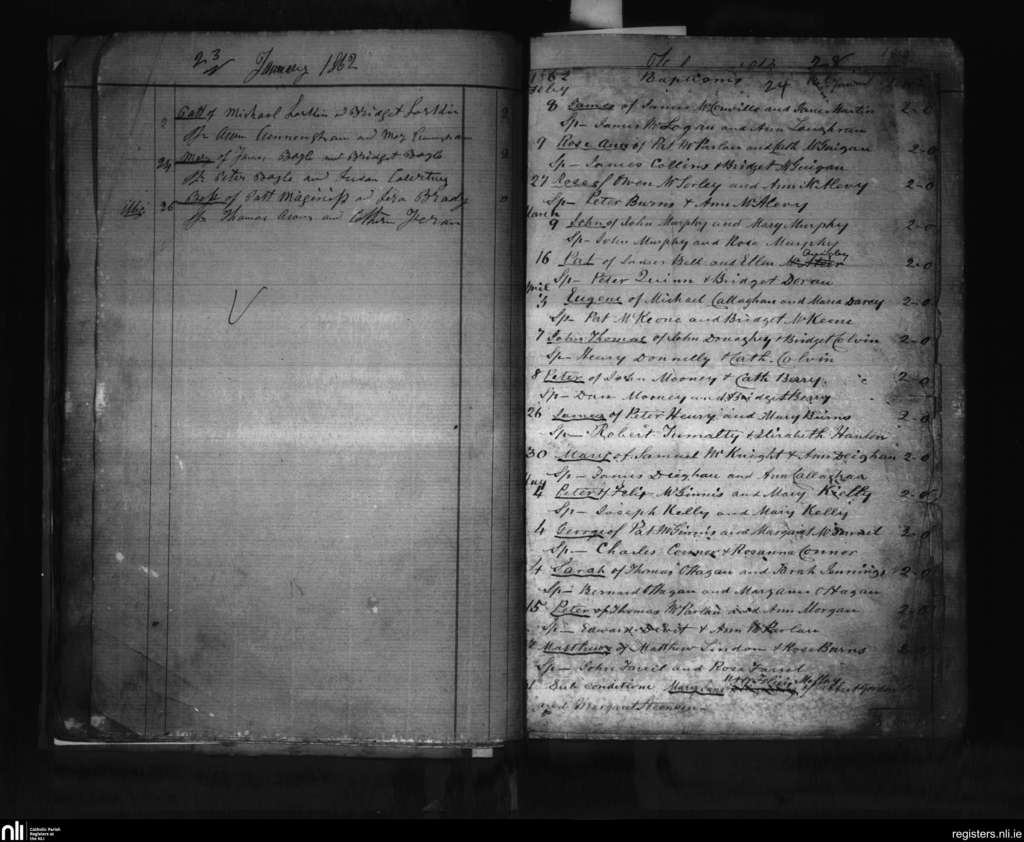 23 January 1862
2 Catt of Michael Larkin and Bridget Larkin
Sps and Mary
24 Mary of James Boyle and Bridget Boyle
Sps Peter Boyle and Susan
1862 26 of Patt Maginiss and Brady
Sps Thomas and
1862 Baptisms 24
Feby
8 James of James McConville and Jane Martin 2-0
Sp- James McLogan and Ann Loughran
9 Rose Ann of Pat McParlan and Cath McGuigan 2-0
Sp- James Collins & Bridget McGuigan
27 Rose of Owen McSorley and Ann McAlevy 2-0
Sp- Peter Burns & Ann McAlevy
March
9 John of John Murphy and Mary Murphy 2-0
Sp- John Murphy and Rose Murphy
16 Pat of James Bell and Ellen Quigley 2-0
Sp- Peter Quinn & Bridget Doran
April
3 Eugene of Michael Callaghan and Maria Darcy 2-0
Sp- Pat McKeone and Bridget McKeone
7 John Thomas of John Donaghey & Bridget Colvin 2-0
Sp- Henry Donnelly & Cath. Colvin
8 Peter of John Mooney & Cath Berry 2-0
Sp- Dan Mooney and Bridget Berry
26 James of Peter Henry and Mary Burns 2-0
Sp- Robert Tumalty & Elizabeth Hanlon
30 Mary of Samuel McKnight & Ann Deighan 2-0
Sp- James Dieghan and Ann Callaghan
May
4 Peter of Felix McGinnis and Mary Kielly 2-0
Sp- Joseph Kelly and Mary Kelly
4 George of Pat McGinnis and Margaret 2-0
Sp- Charles Connor & Rosanna Connor
4 Sarah of Thomas O'Hagan and Sarah Jennings 2-0
Sp- Bernard O'Hagan and Margaret O'Hagan
15 Peter of Thomas McParlan and Ann Morgan 2-0
Sp- Edward Devit & Ann McParlan
Matthew of Matthew Lindon & Rose Burns 2-0
Sp- John and Rose
Sub conditione Mary Jane of Robert Gordon
and Margaret
nli Catholic Parish Registers at the NLI
registers.nli.ie